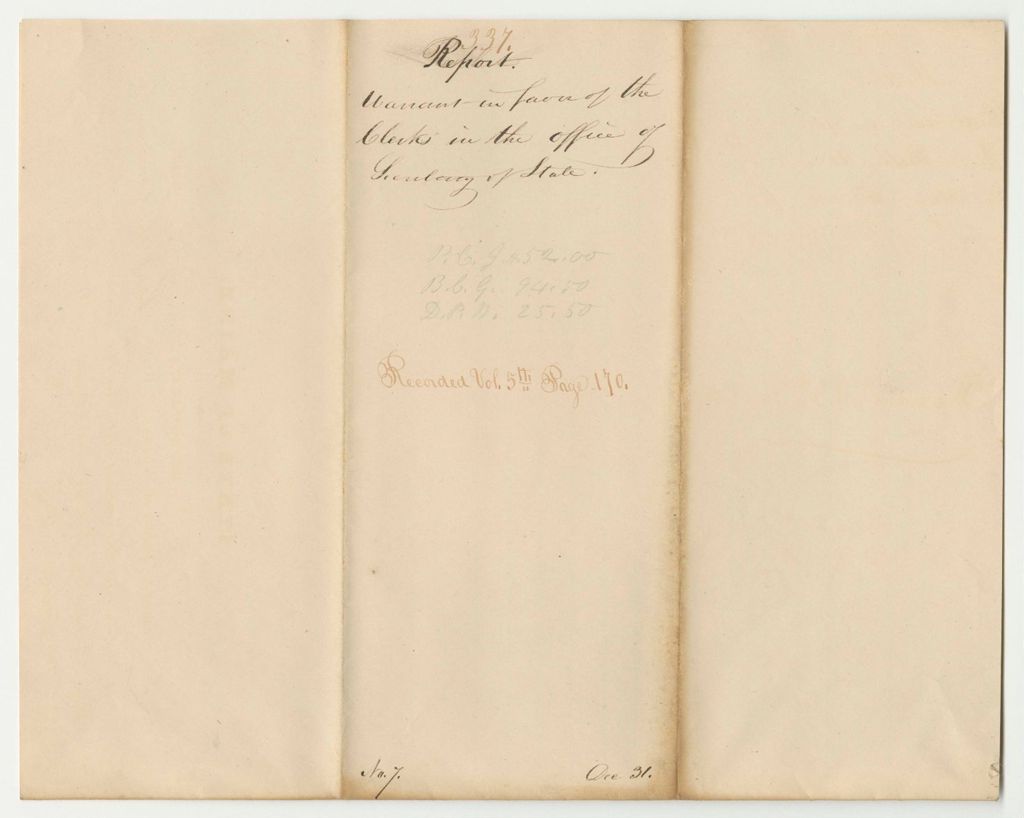 337.
Report.
Warrant in favor of the
Clerks in the office of
Secretary of State.
P. C. J. 452.00
B. C. G. 94.50
D. P. 25.50
Recorded Vol. 5th Page 170.
No. 7. Dec 31.